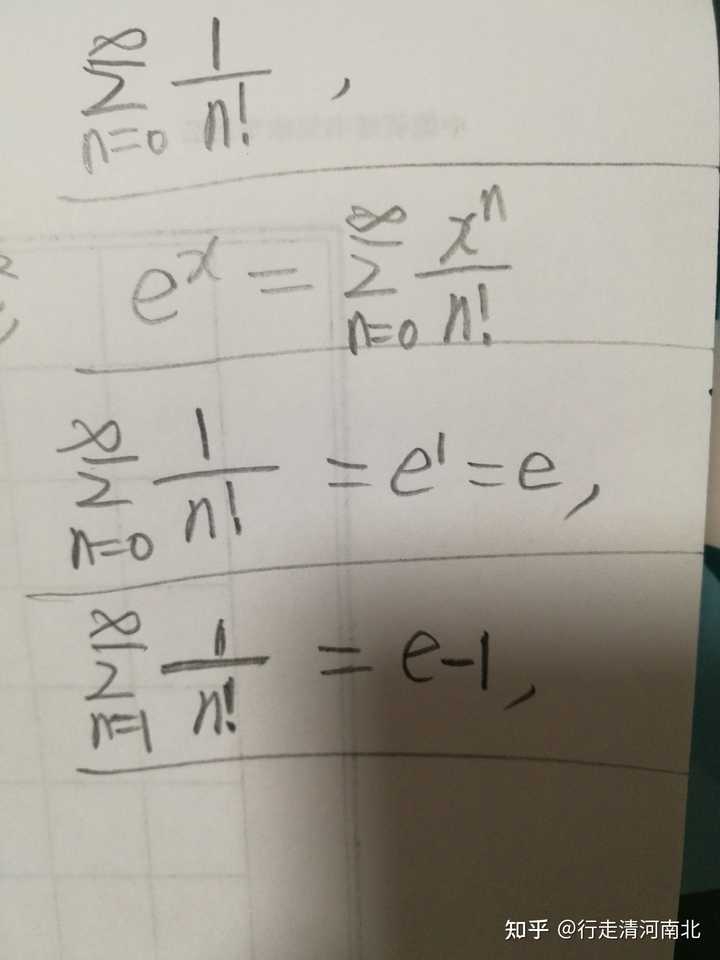 ∞
∑ 1/n! ,
n=0
e^x = ∑_{n=0}^{∞} x^n/n!
∑_{n=0}^{∞} 1/n! = e^1 = e,
∑_{n=1}^{∞} 1/n! = e-1,
知乎 @行走清河南北